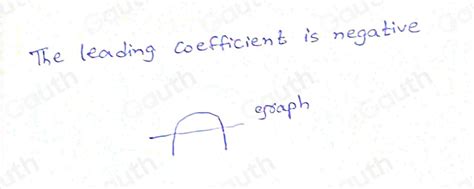 The leading coefficient is negative
graph